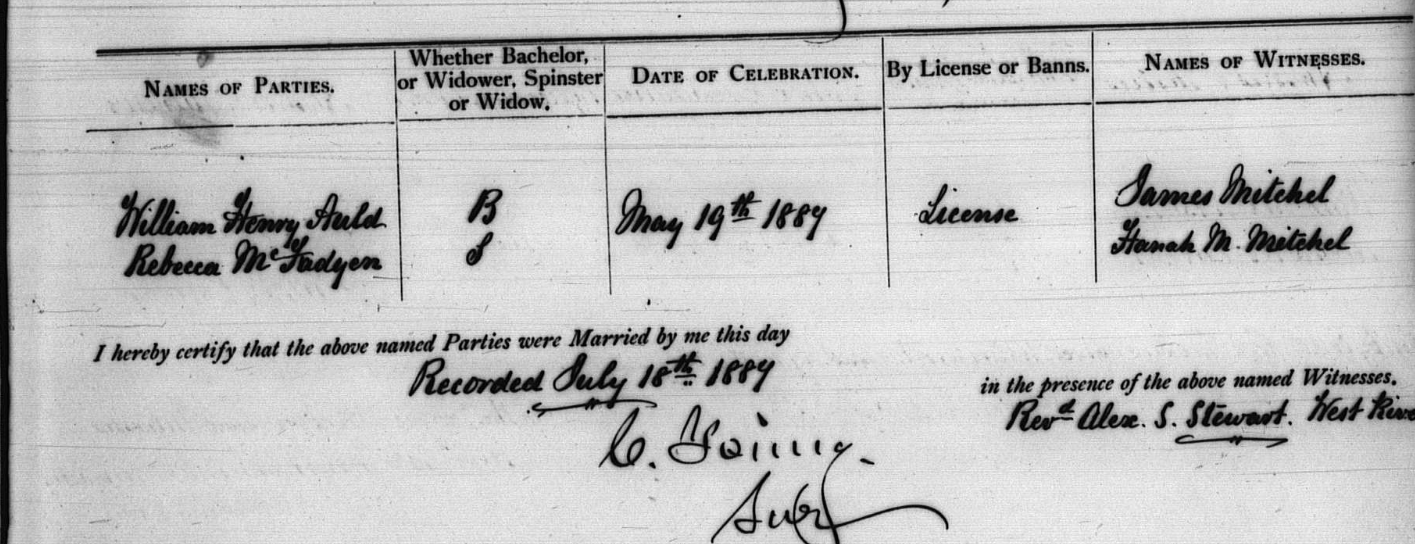 NAMES OF PARTIES.
Whether Bachelor,
or Widower, Spinster
or Widow,
DATE OF CELEBRATION.
By License or Banns.
NAMES OF WITNESSES.
William Henry Auld
B
May 19th 1887
License
James Mitchel
Rebecca McFadyen
S
Hanah M. Mitchel
I hereby certify that the above named Parties were Married by me this day
Recorded July 18th 1887
in the presence of the above named Witnesses.
Revd Alex. S. Stewart. West
C.